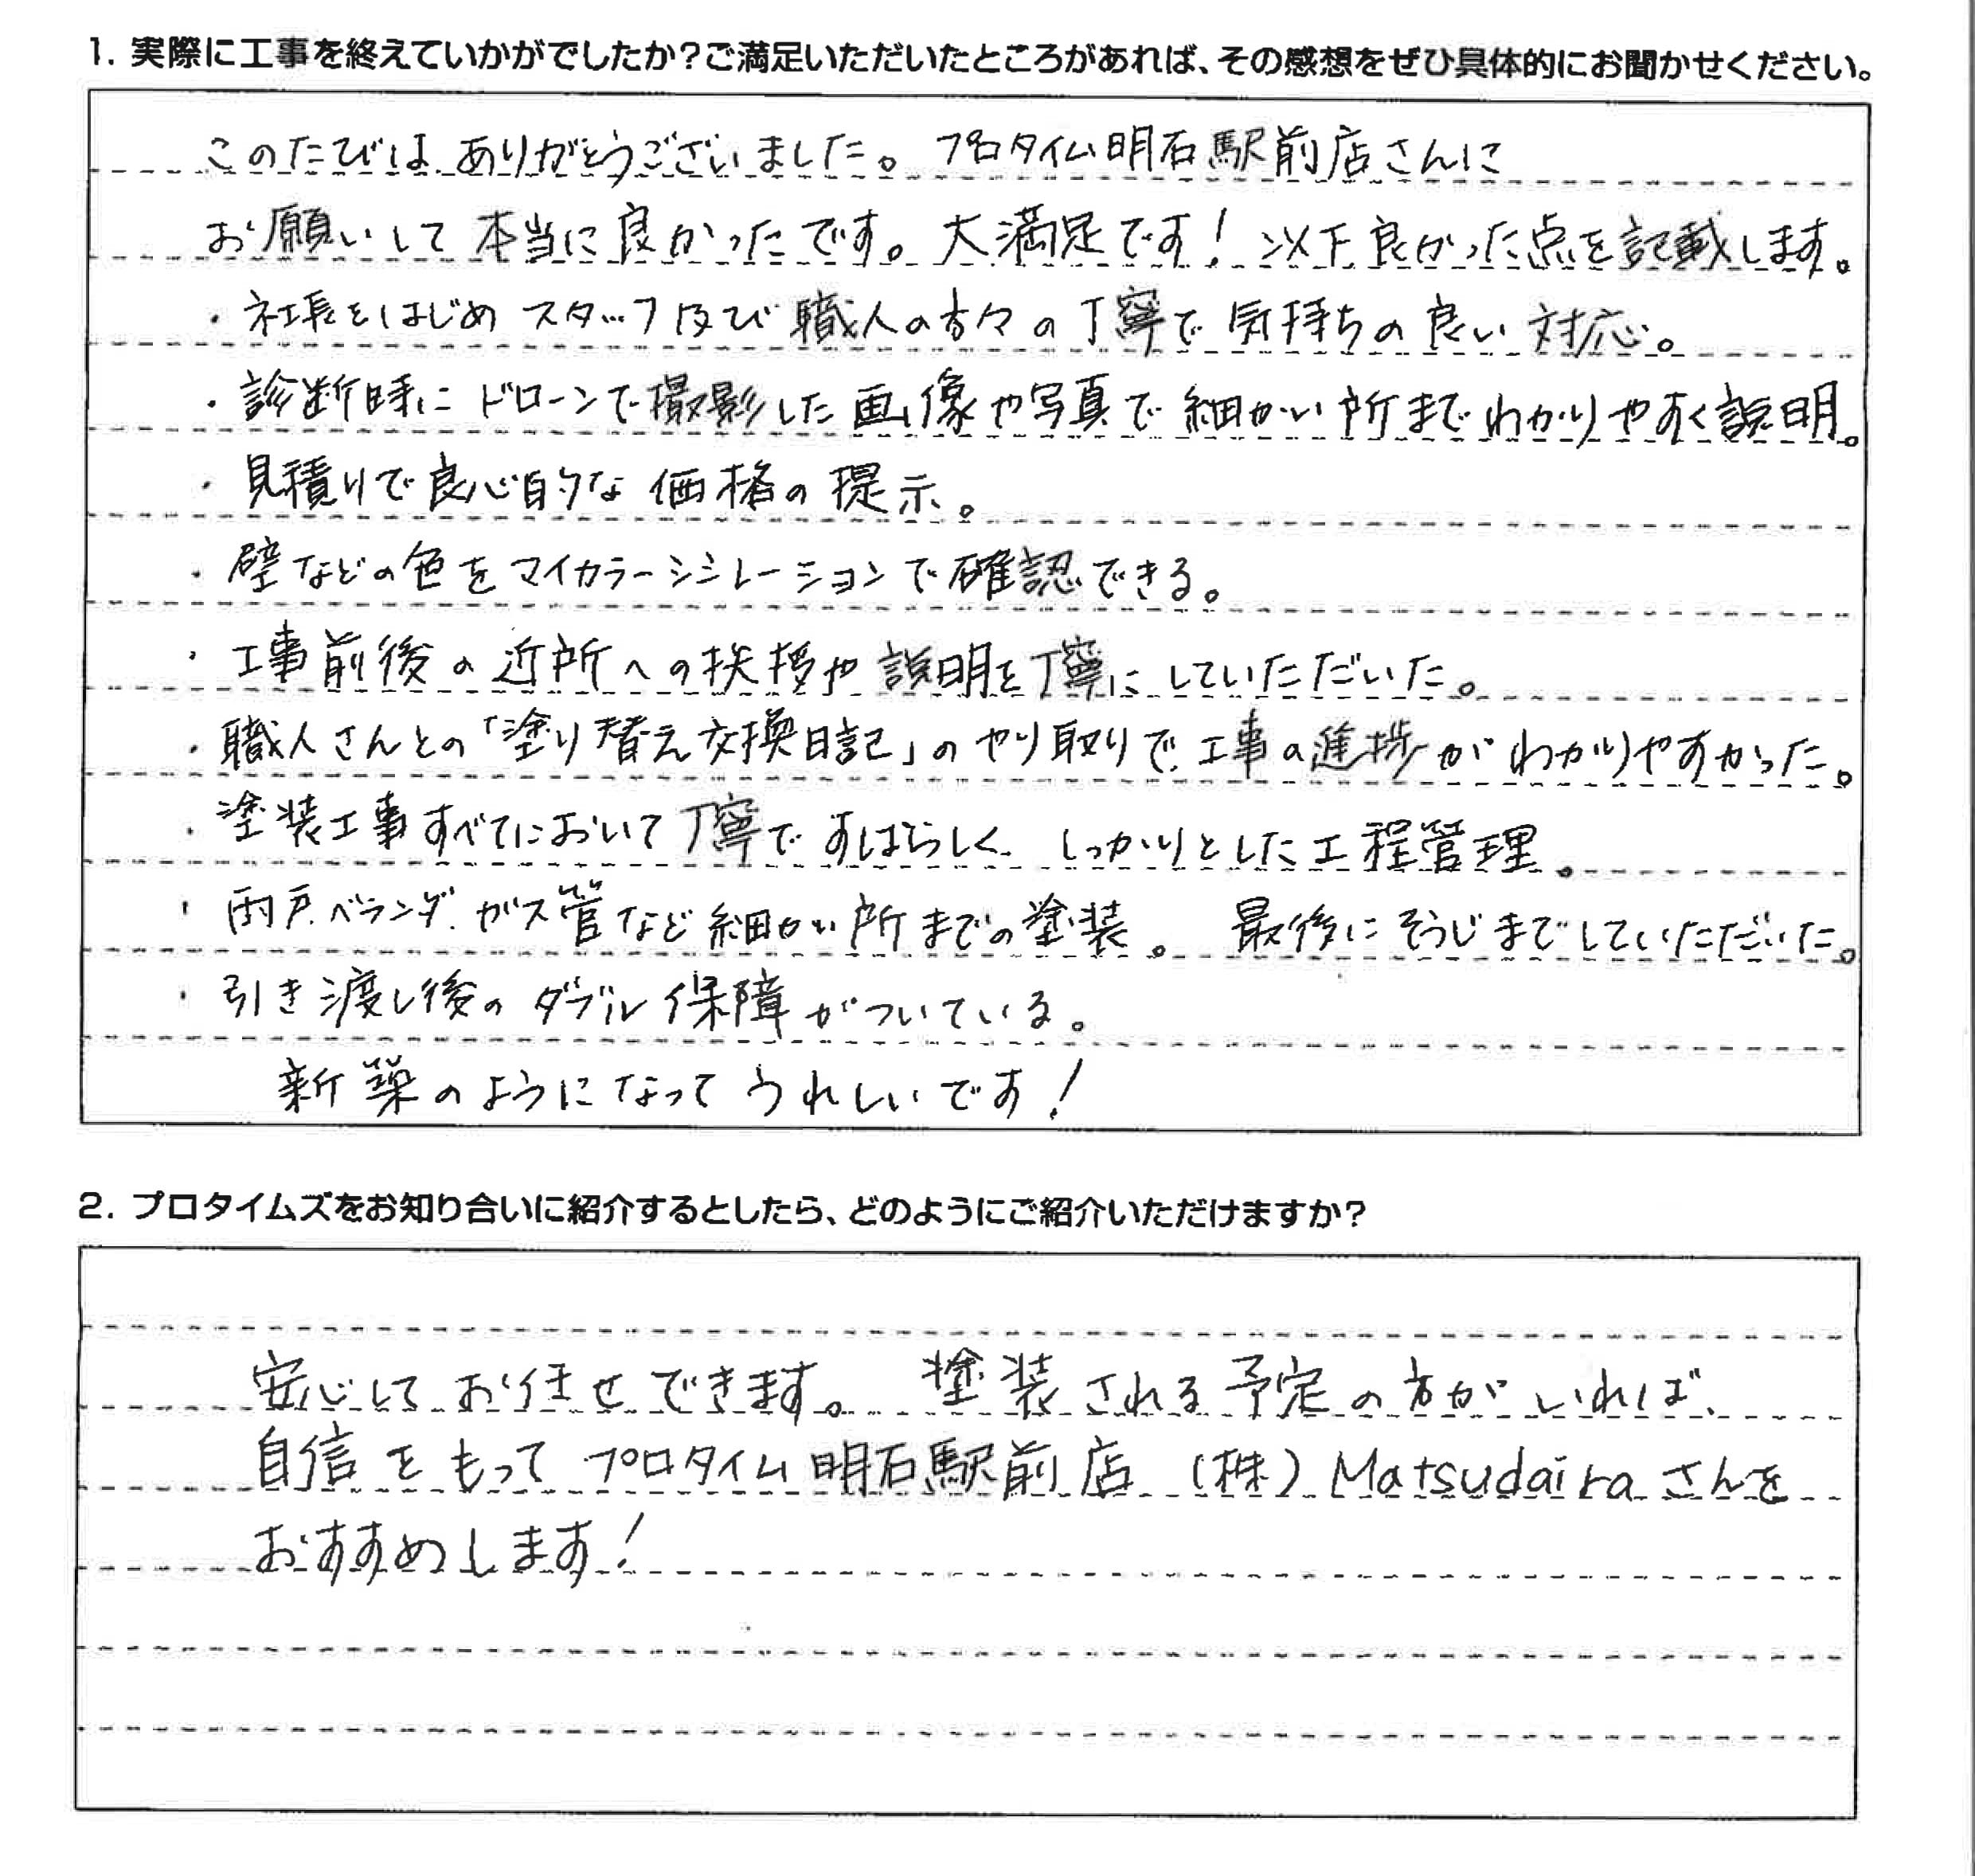 1. 実際に工事を終えていかがでしたか?ご満足いただいたところがあれば、その感想をぜひ具体的にお聞かせください。
このたびは、ありがとうございました。プロタイム明石駅前店さんに
お願いして本当に良かったです。大満足です!以下良かった点を記載します。
・社長をはじめスタッフ及び職人の方々の丁寧で気持ちの良い対応。
・診断時にドローンで撮影した画像や写真で細かい所までわかりやすく説明。
・見積りで良心的な価格の提示。
・壁などの色をマイカラーシミレーションで確認できる。
・工事前後の近所への挨拶や説明を丁寧にしていただいた。
・職人さんとの「塗り替え交換日記」のやり取りで、工事の進捗がわかりやすかった。
・塗装工事すべてにおいて丁寧ですばらしく、しっかりとした工程管理。
・雨戸、ベランダ、ガス管など細かい所までの塗装。最後にそうじまでしていただいた。
・引き渡し後のダブル保障がついている。
新築のようになってうれしいです!
2. プロタイムズをお知り合いに紹介するとしたら、どのようにご紹介いただけますか?
安心してお任せできます。塗装される予定の方がいれば、
自信をもってプロタイム明石駅前店(株)Matsudairaさんを
おすすめします!